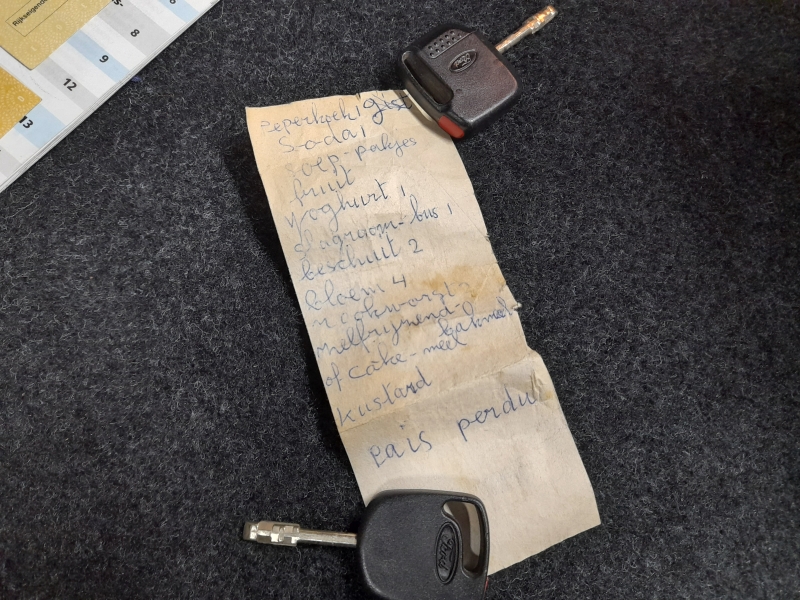 Rijkseigendom
8
9
12
13
Ford
peperkoek 1
Soda 1
soep-pakjes
fruit
yoghurt 1
slagroom-bus 1
beschuit 2
bloem 4
rookworst
zelfrijzend-
bakmeel
of cake-meel
Kustard
pais perdu
Ford